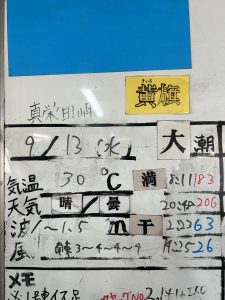 きいろ
黄旗
真栄田岬
9/13(水) 大潮
気温 30℃ 満 8:11 183
天気 晴/曇 20:49 206
波/~1.5m 干 2:23 63
風 3~4~4~9 14:25 26
メモ